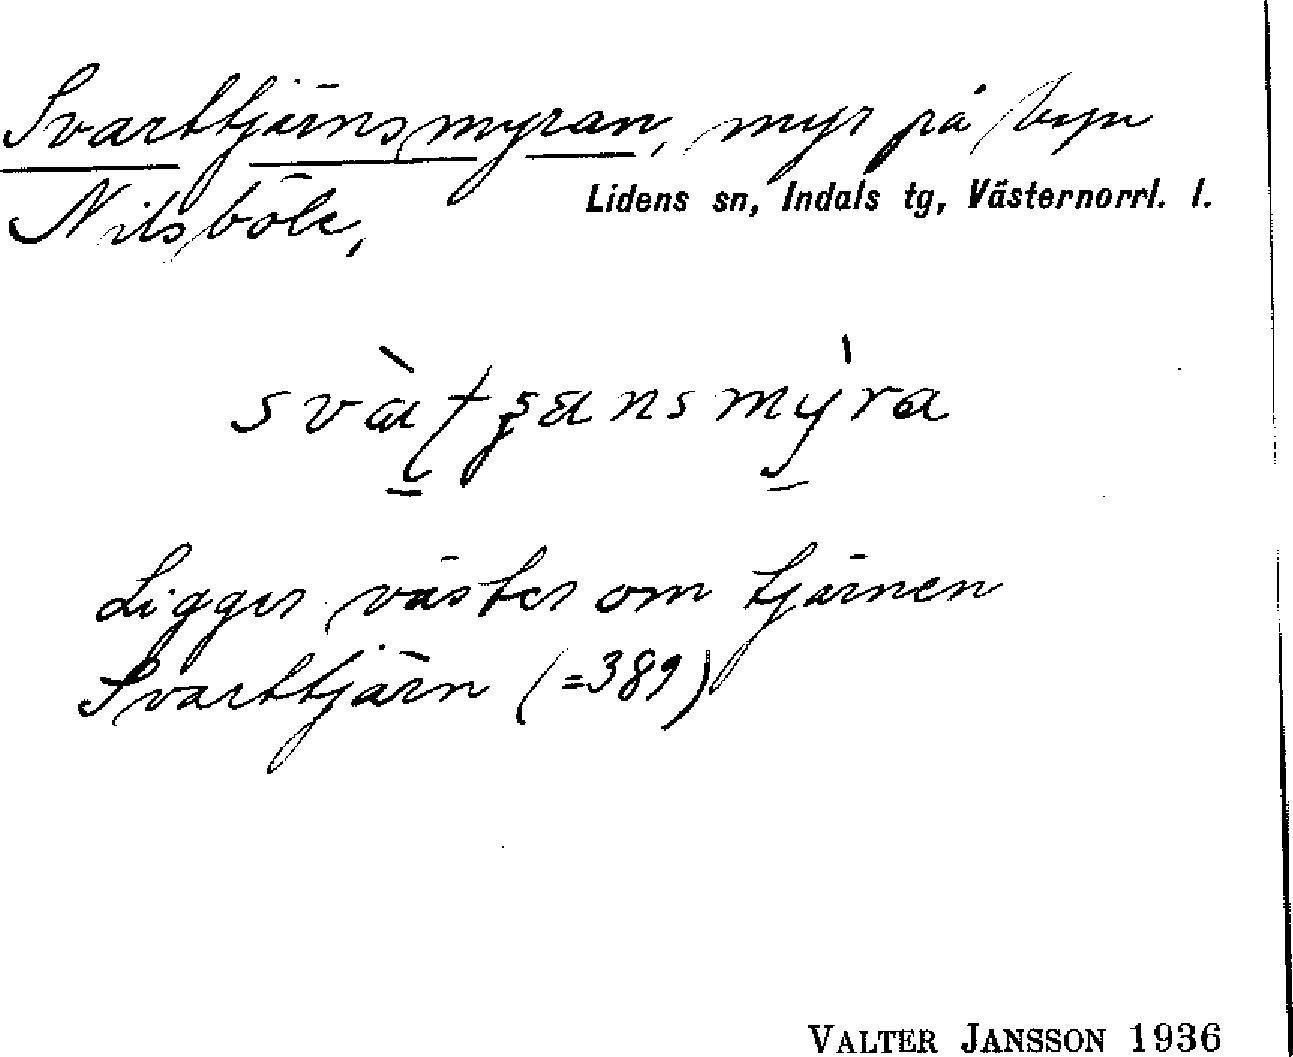 Svarttjärnsmyran, myr på byn
Nilsböle, Lidens sn, Indals tg, Västernorrl. l.
Ligger väster om tjärnen
Svarttjärn (=389)
VALTER JANSSON 1936